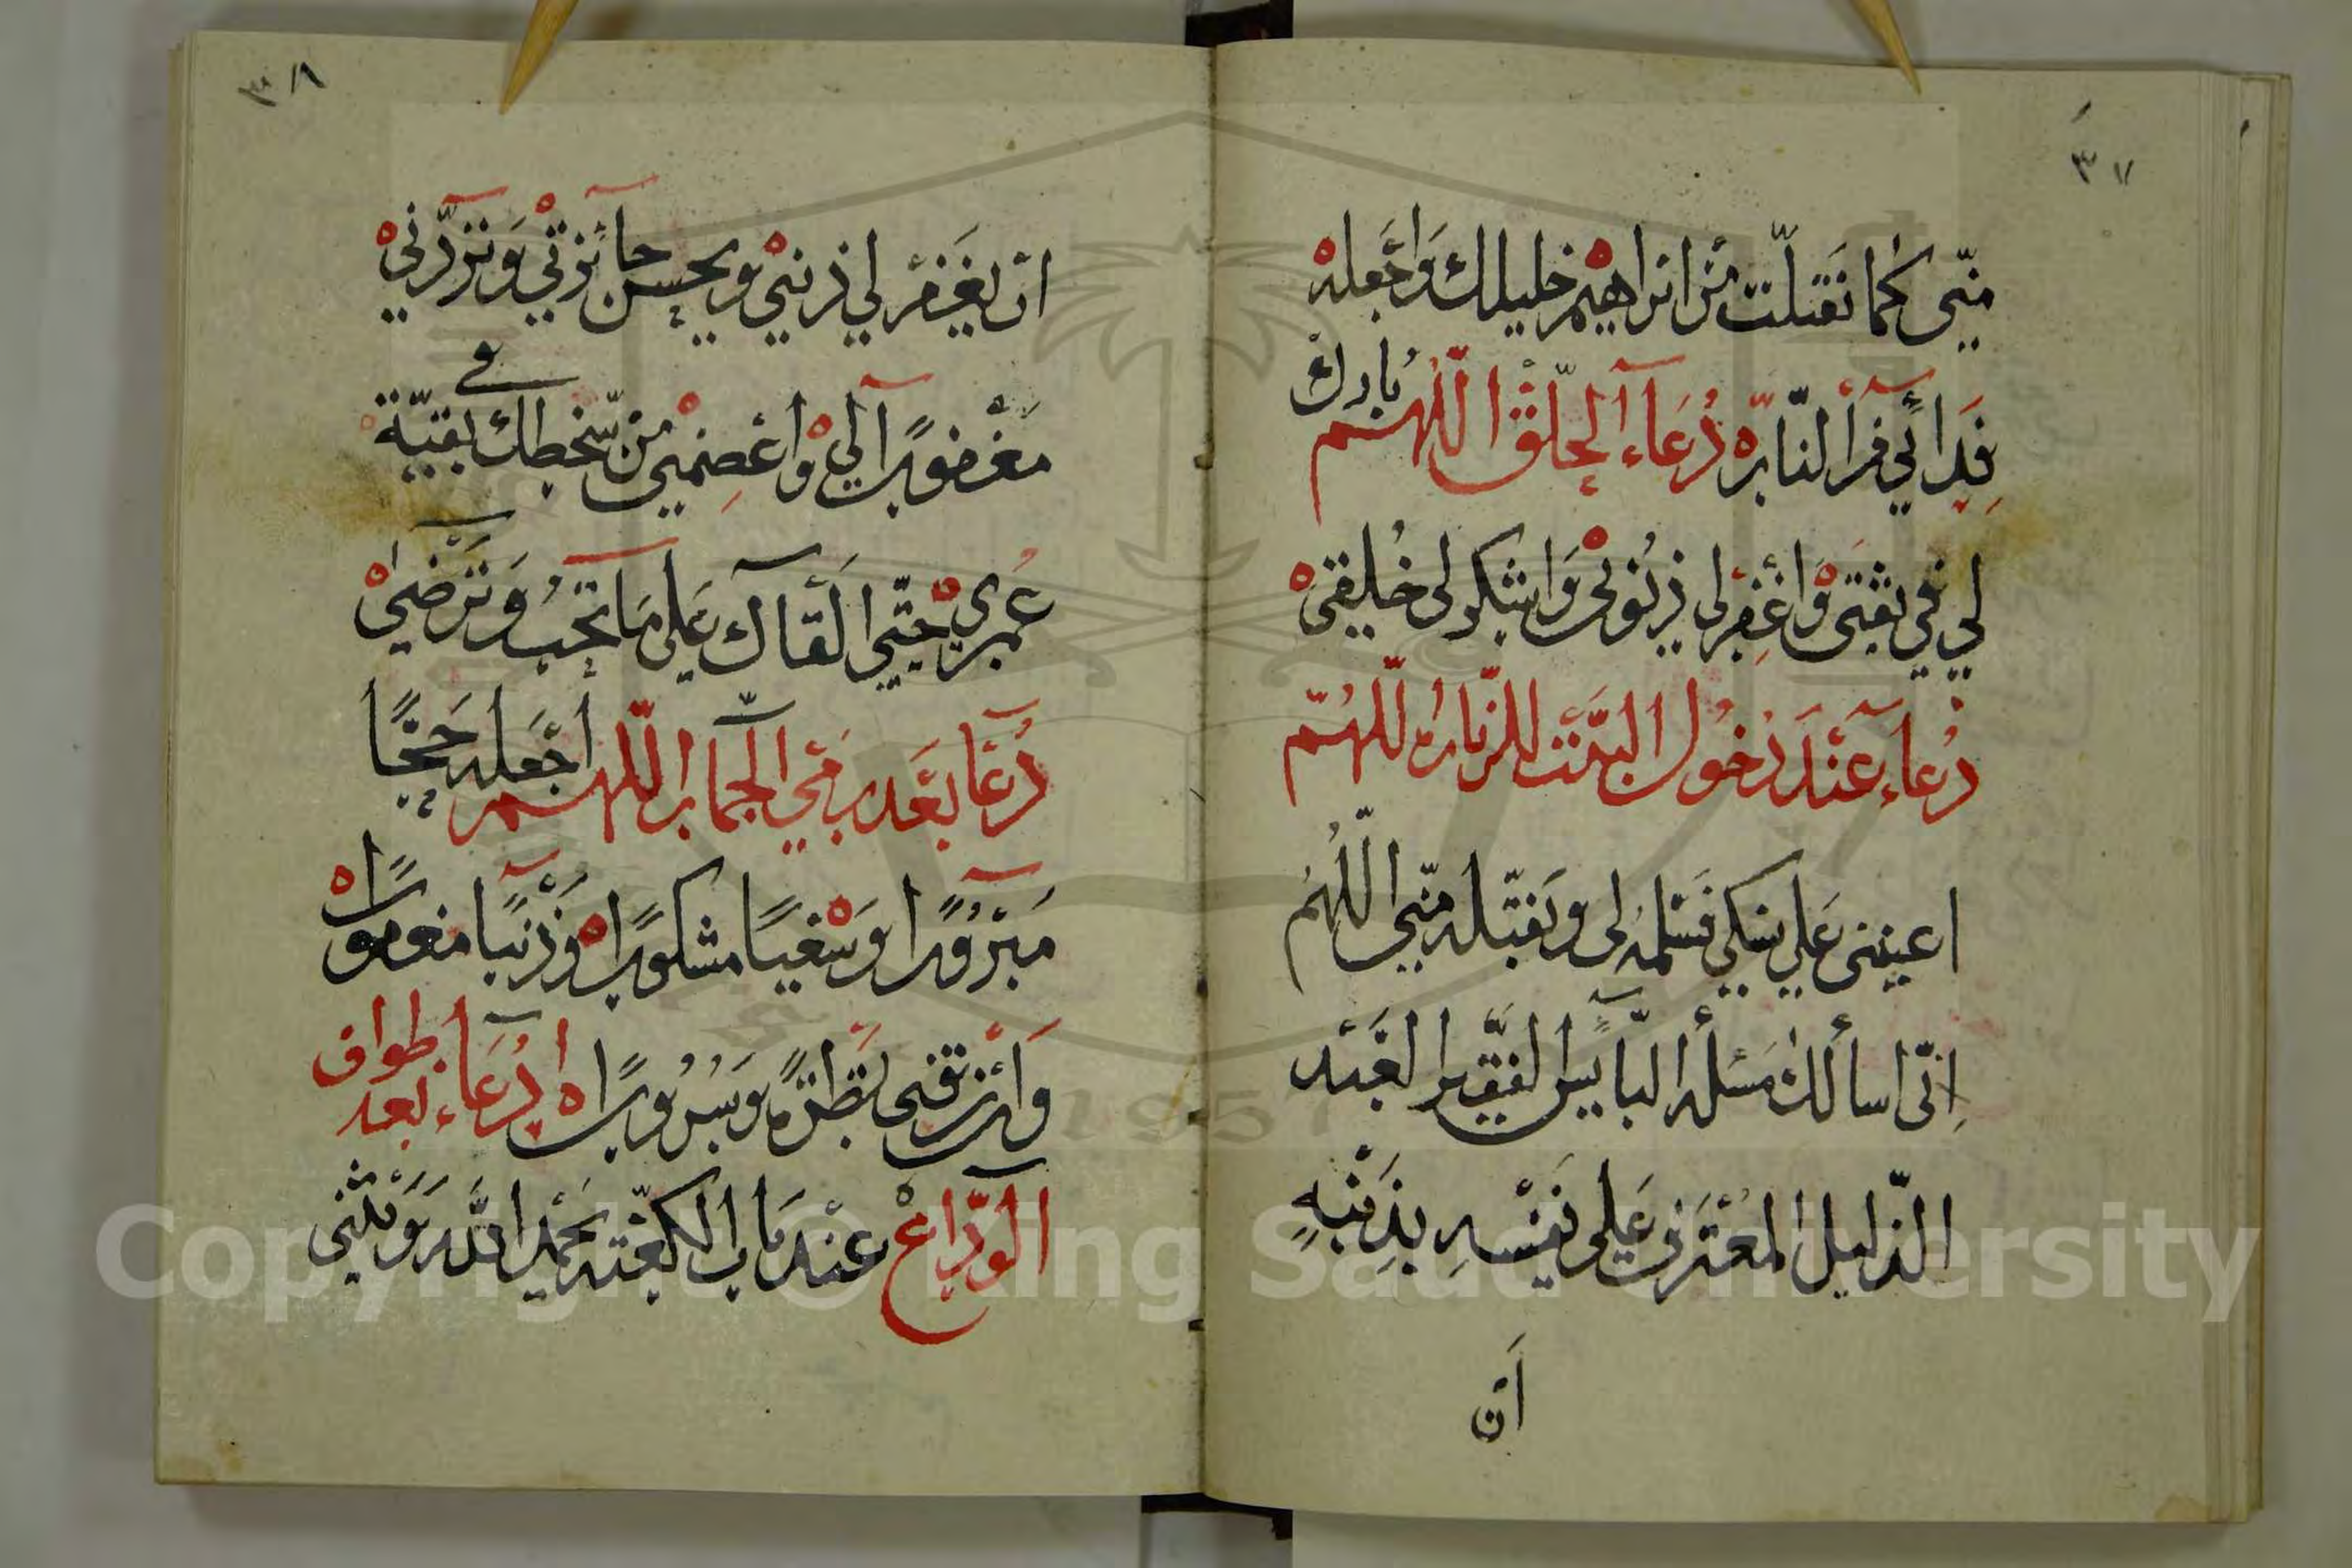 ٣٧
منّي كما تقبلت من ابراهيم خليلك واجعله
فدائي من النار دعاء الحلق اللهم بارك
لي في تفثي واغفر لي ذنوبي واشكر لي خليقتي
دعاء عند دخول البيت للزيارة اللهم
اعيني على نسكي فسلمه لى وتقبله منّي اللهم
انّى اسألك مسئلة البآيس الفقير العبد
الذليل المعترف على نفسه بذنبه
أن
٣٨
ان يغفر لي ذنبي ويحسن جائزتي وتزدني
مغفورا لي واعصمني من سخطك بقيّة
في
عمري حتّى القاك على ما تحب وترضى
دعا بعد رمي الجمار اللهم اجعله حجّا
مبرورا وسعيا مشكورا وذنبا مغفورا
وارزقني نضرة وسرورا دعاء بعد طواف
الوداع عند باب الكعبة يحمد الله ويثني
Copyright © King Saud University
1957